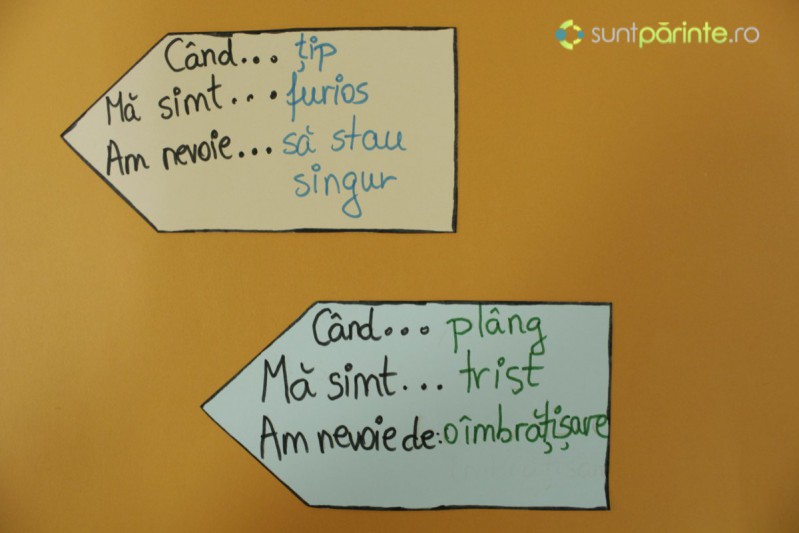 suntpărinte.ro
Când... țip
Mă simt... furios
Am nevoie... să stau
singur
Când... plâng
Mă simt... trist
Am nevoie de: o îmbrățișare